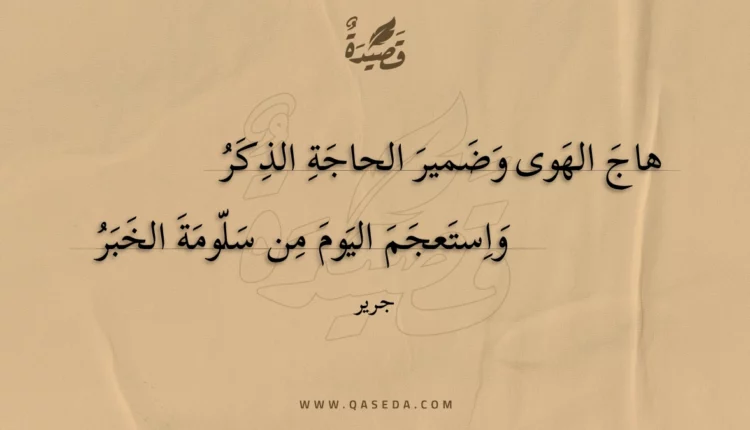 قَصِيْدَةٌ
هاجَ الهَوى وَضَميرَ الحاجَةِ الذِكَرُ
وَاِستَعجَمَ اليَومَ مِن سَلّومَةَ الخَبَرُ
جرير
WWW.QASEDA.COM